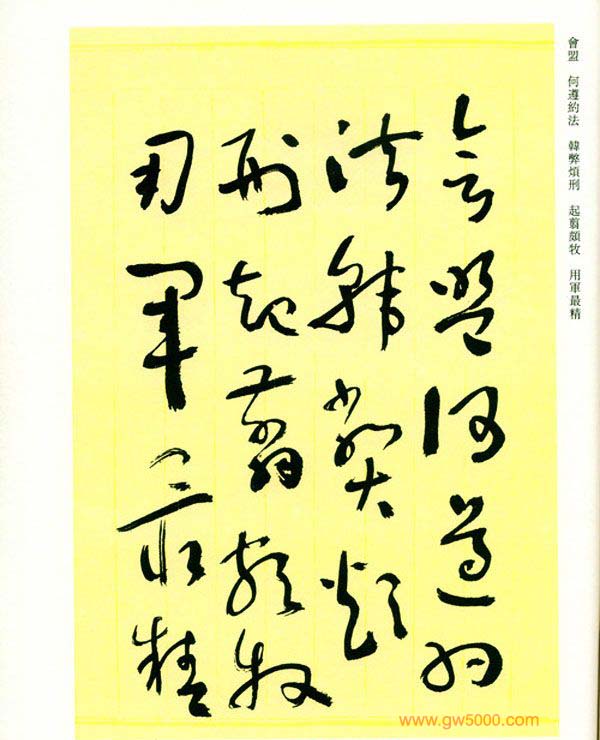 會盟 何遵約法 韓弊煩刑 起翦頗牧 用軍最精
會盟何遵約
法韓弊煩
刑起翦頗牧
用軍最精
www.gw5000.com